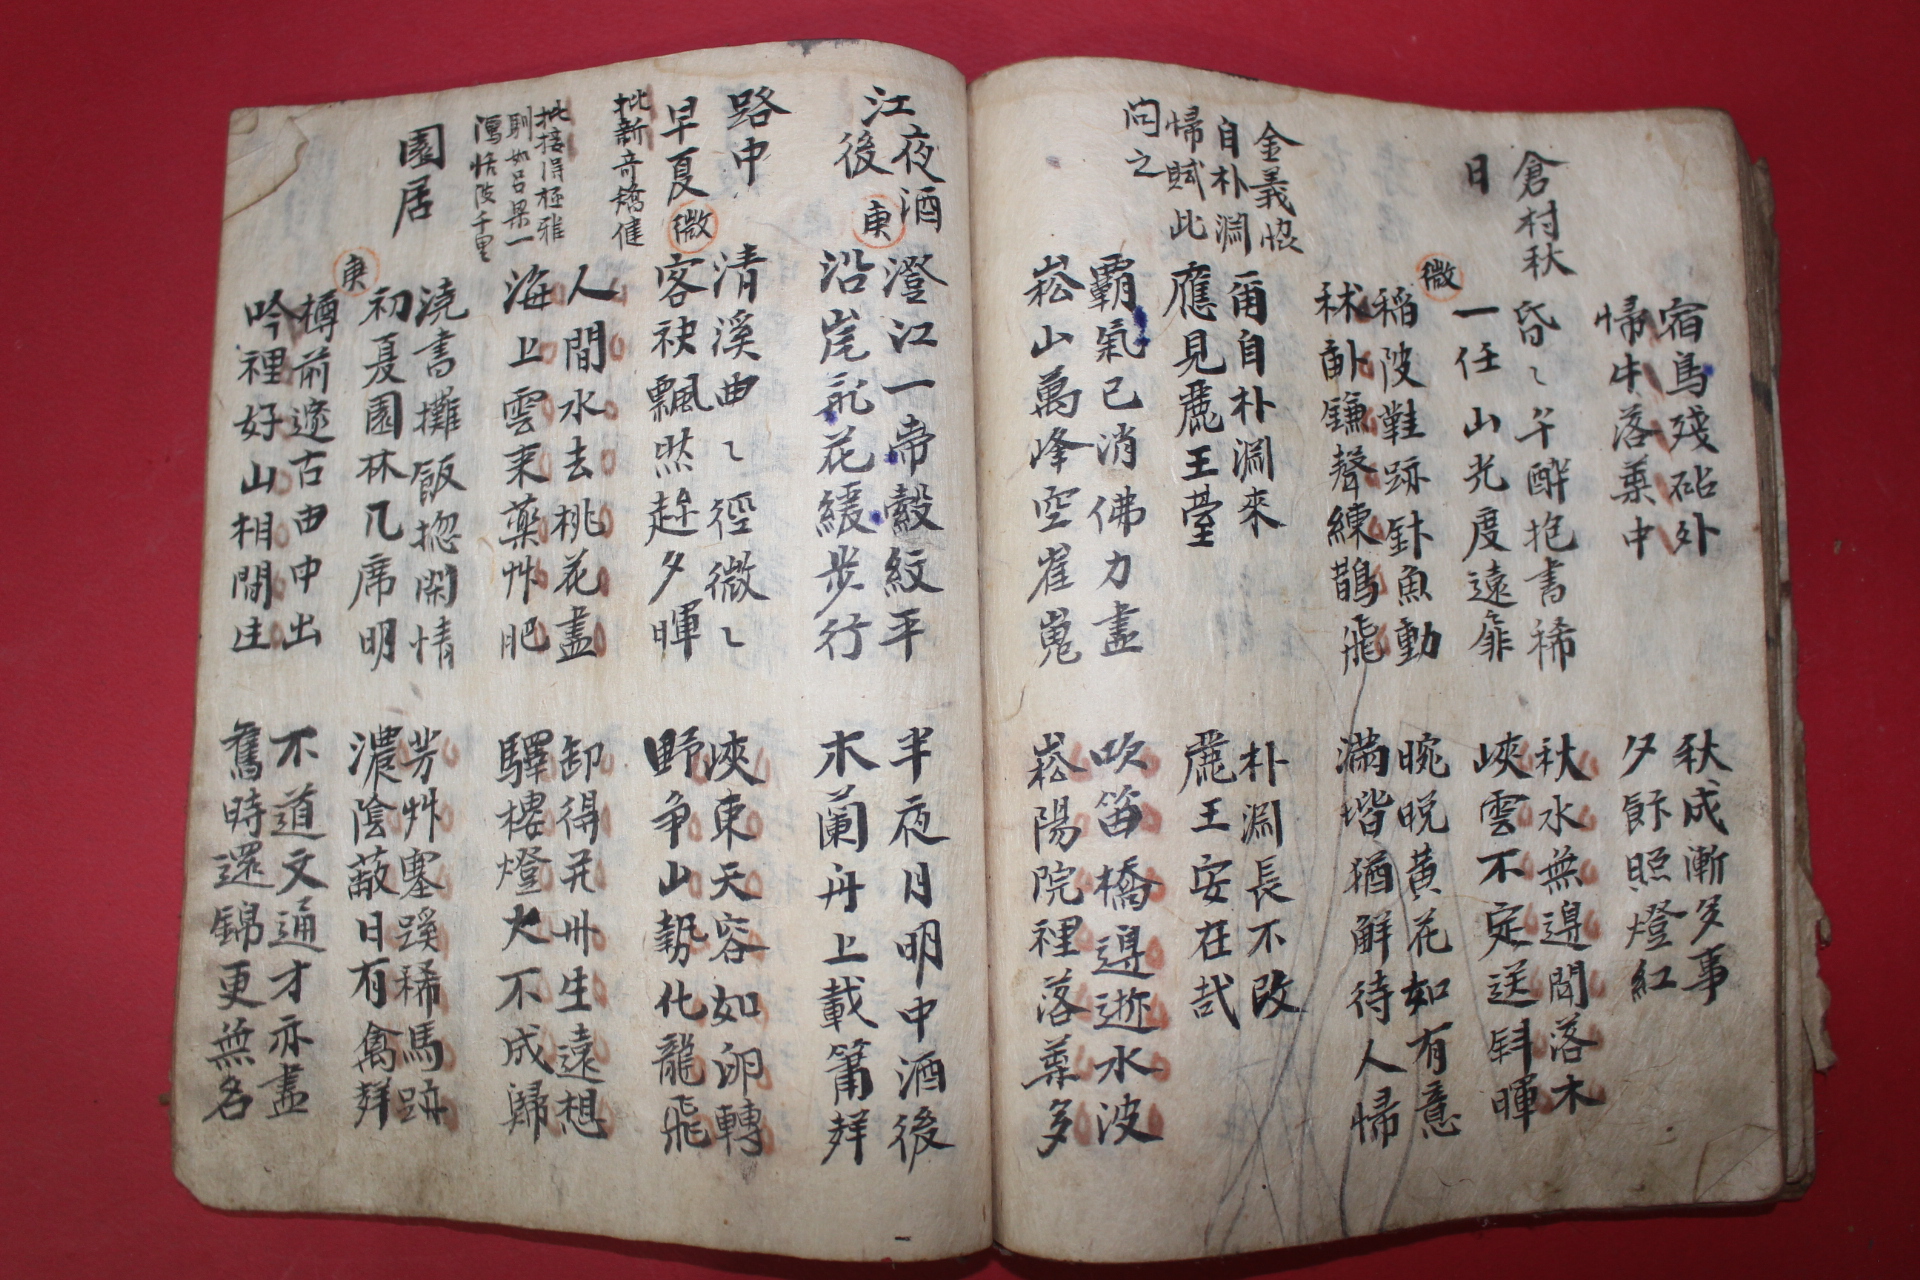 宿鳥殘砧外
帰牛落葉中
秋成漸多事
夕餘照燈紅
倉村秋
日
微
昏〻午醉抱書稀
一任山光度遠扉
秋水無邊聞落木
峽雲不定送斜暉
稻陂鞋跡針魚動
秫畝鎌聲練鵲飛
晼晩黃花如有意
滿堦猶解待人帰
金義㤿
自朴淵
帰賦此
问之
甭自朴淵來
應見麗王臺
朴淵長不改
麗王安在㢤
覇氣已消佛力盡
崧山萬峰空崔嵬
吹笛橋邊逝水波
崧陽院裡落葉多
江夜酒
後
庚
澄江一帶縠紋平
沿岸䟽花緩步行
半夜月明中酒後
木蘭舟上載簫聲
路中
早夏
微
清溪曲〻徑微〻
客袂飄然趁夕暉
峽東天容如卵轉
野爭山勢化龍飛
批新奇矯健
人間水去桃花盡
海上雲来藥艸肥
卸得幷州生遠想
驛樓燈火不成歸
批接得極雅
馴如呂梁一
瀉恬波千里
園居
庚
澆書攤飯揔閑情
初夏園林几席明
芳艸塞蹊稀馬跡
濃陰蔽日有禽聲
樽前遼古由中出
吟裡好山相間生
不道文通才亦盡
舊時還錦更無名